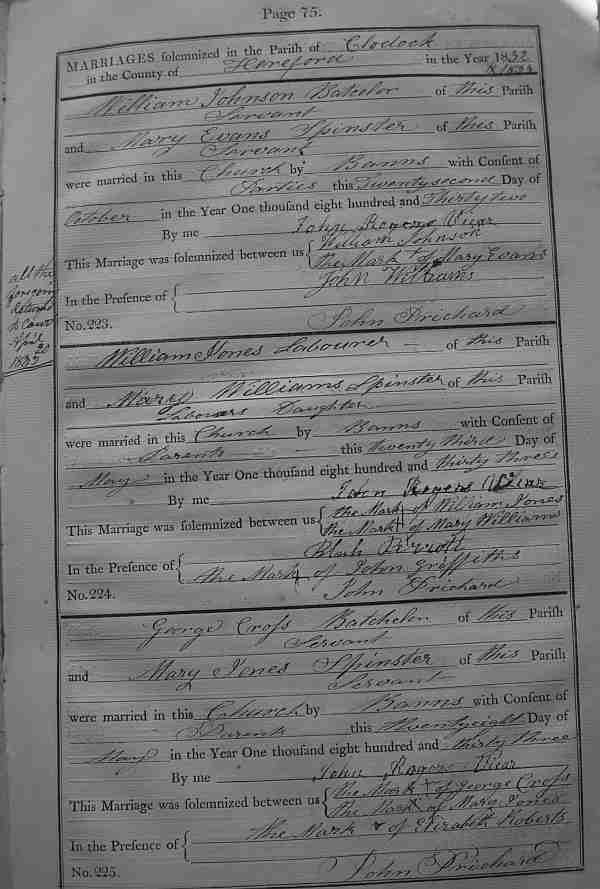 Page 75.
MARRIAGES solemnized in the Parish of Clodock
in the County of Hereford in the Year 1832
& 1833
William Johnson Batchelor of this Parish
Servant
and Mary Evans Spinster of this Parish
Servant
were married in this Church by Banns with Consent of
Parties this Twenty second Day of
October in the Year One thousand eight hundred and Thirty two
By me John Rogers Vicar
This Marriage was solemnized between us William Johnson
The Mark + of Mary Evans
In the Presence of John Williams
No. 223. John Prichard
all the
1833
William Jones Labourer of this Parish
and Mary Williams Spinster of this Parish
Labourers Daughter
were married in this Church by Banns with Consent of
Parents this Twenty third Day of
May in the Year One thousand eight hundred and thirty three
By me John Rogers Vicar
This Marriage was solemnized between us the Mark + of William Jones
the Mark + of Mary Williams
In the Presence of
the Mark + of John Griffiths
No. 224. John Prichard
George Cross Batchelor of this Parish
Servant
and Mary Jones Spinster of this Parish
Servant
were married in this Church by Banns with Consent of
Parents this Twenty eight Day of
May in the Year One thousand eight hundred and thirty three
By me John Rogers Vicar
This Marriage was solemnized between us the Mark + of George Cross
The Mark + of Mary Jones
In the Presence of The Mark + of Elizabeth Roberts
No. 225. John Prichard